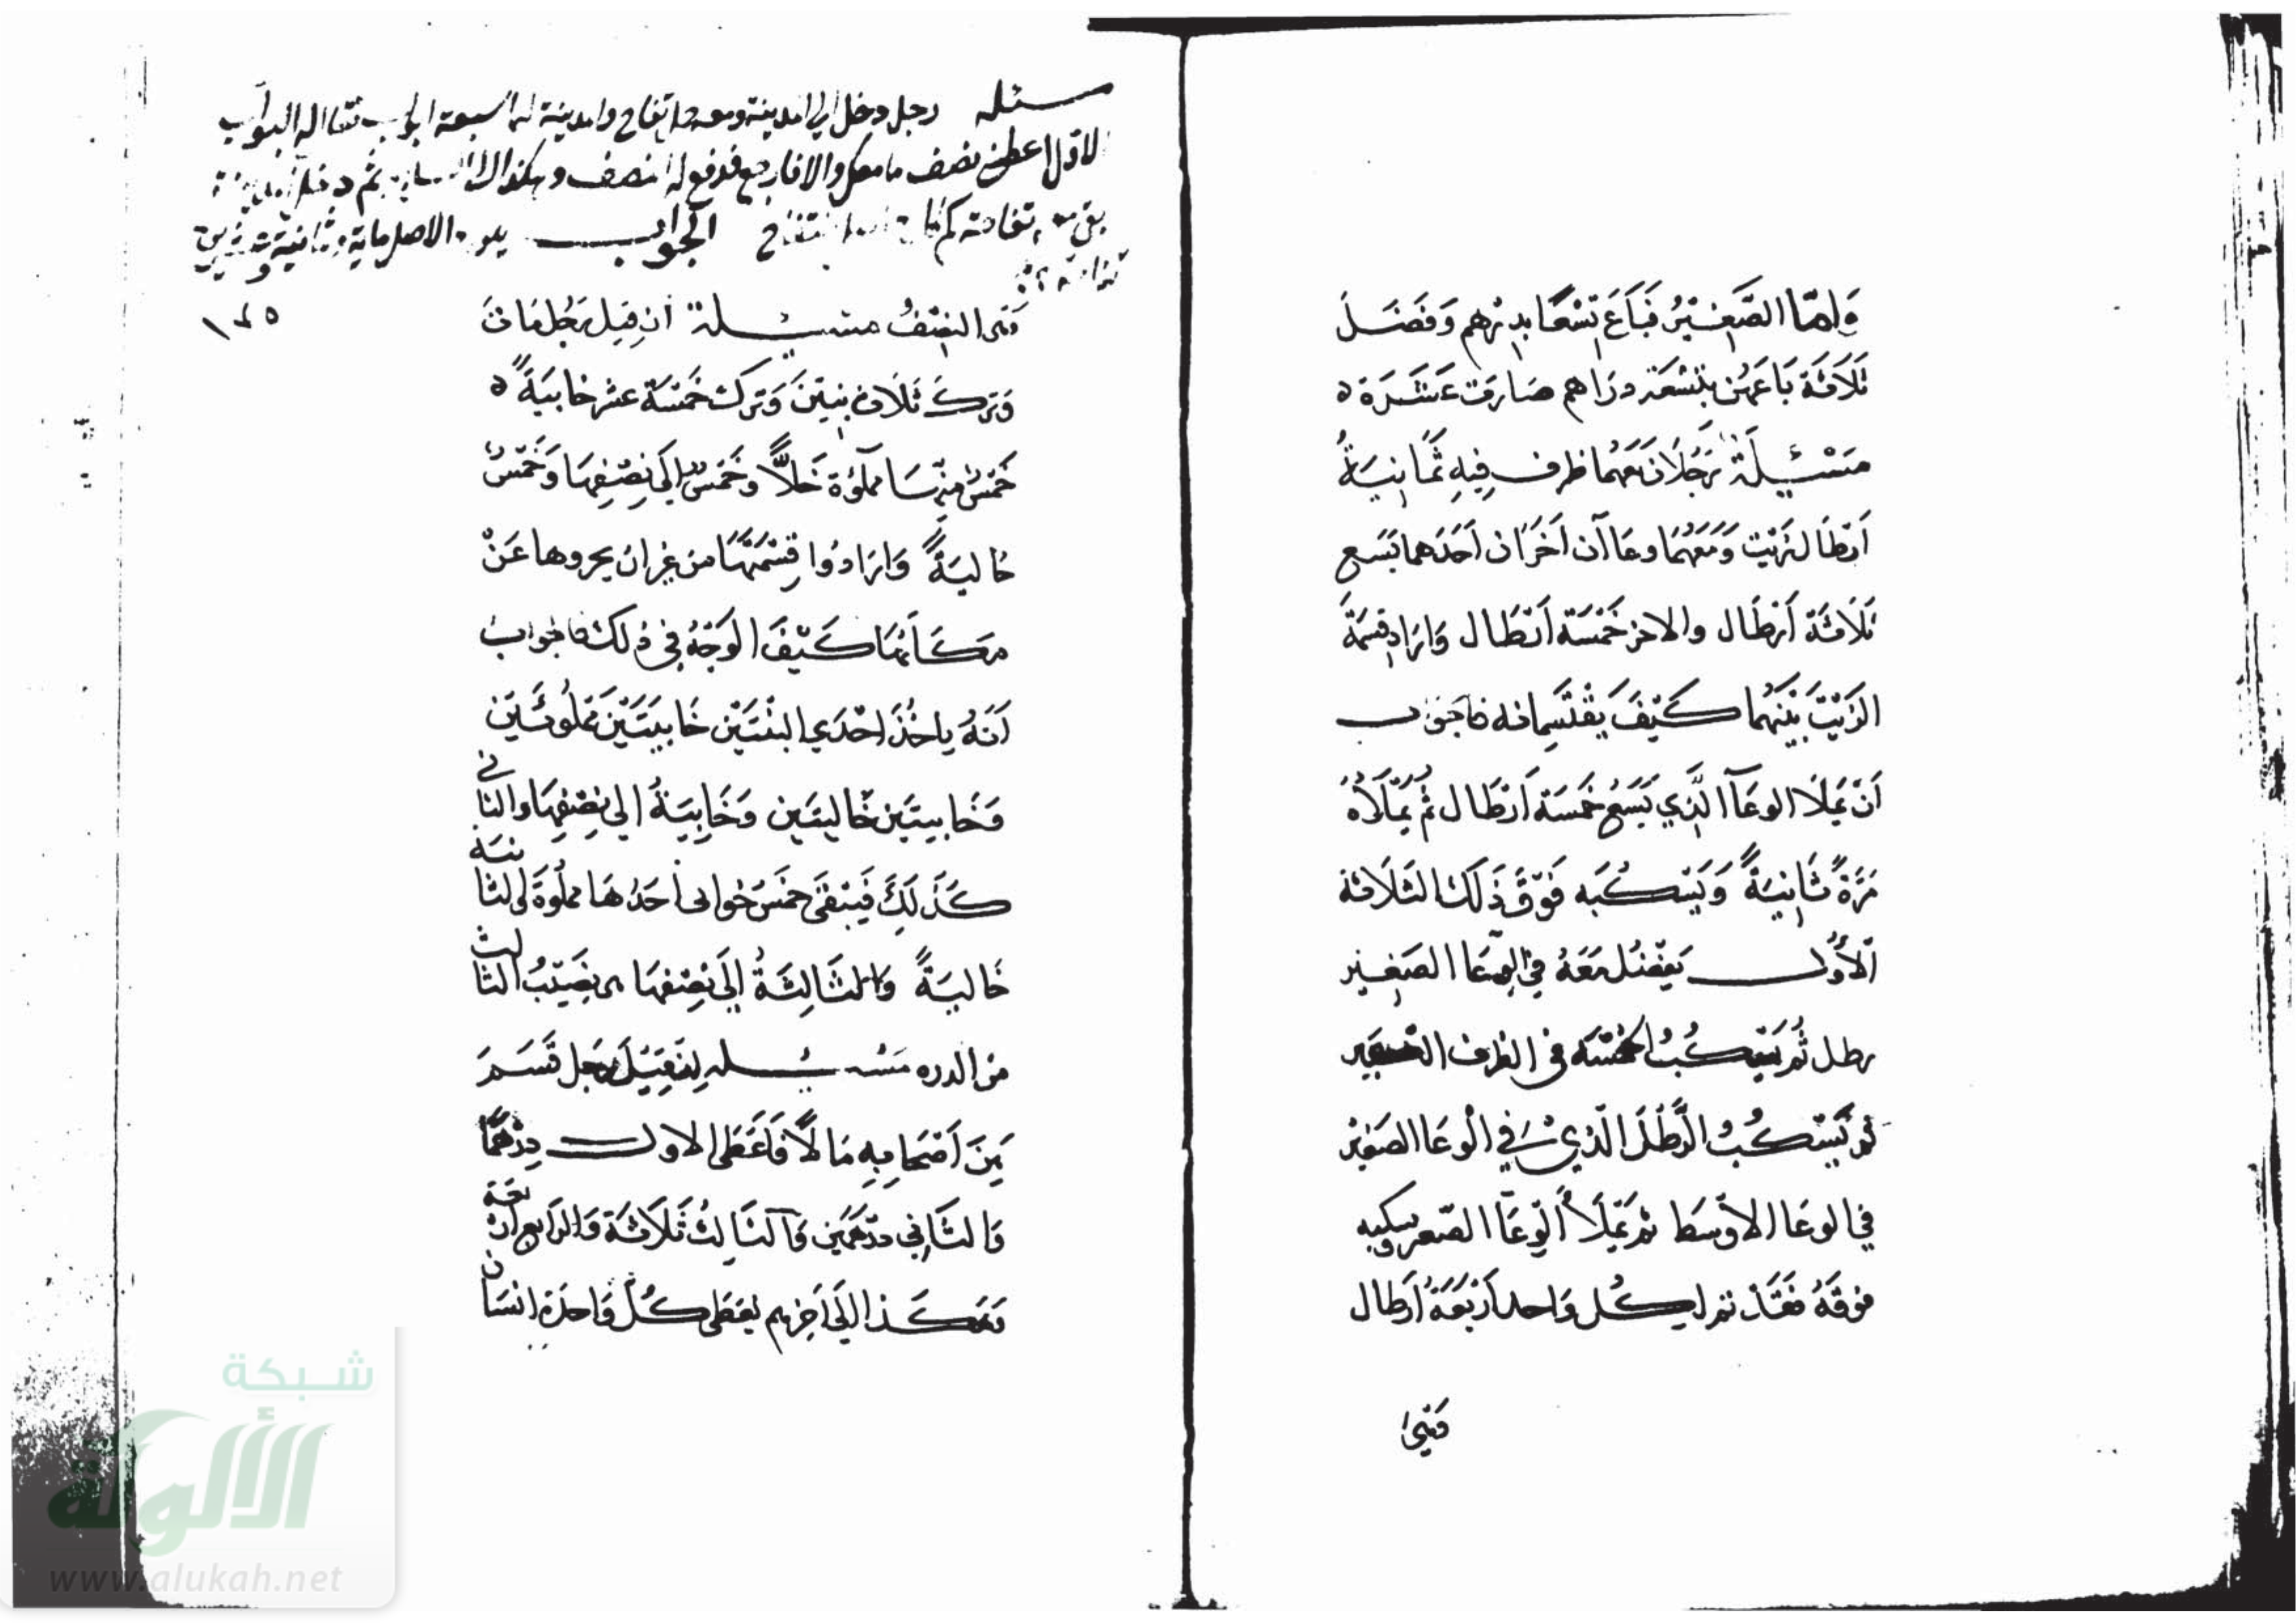 وَامّا الصَّغِيْرُ فَبَاعَ تِسْعًا بدِرْهم وَفَضَلَ
ثَلَاثَة بَاعَهُنَ بتِسْعَة درَاهم صَارَت عَشَرَة ه
مَسْئِلَة رَجُلَان مَعَهُمَا ظرف فِيهِ ثَمَانِيَةُ
اَرْطَال زَيْت وَمَعَهُمَا وعَاآن اَخَرَان اَحَدَهما يَسَع
ثَلَاثَة اَرْطَال والاخر خَمْسَة اَرْطَال وَارَاد قِسْمَةَ
الزَيْتَ بَيْنَهُمَا كَيْفَ يَقْتَسِمَانه فاجَوَاب
اَنْ يَمْلَا الوعَآ الَّذِي يَسَعُ خَمْسَة اَرْطَال ثُم يَمْلَأهُ
مَرَّةً ثَانِيَةً وَيَسْكُبَه فَوْقَ ذَلَك الثَلَاثة
اَلأَوُّل يَفْضُل مَعَهُ فِي الوِعَا الصَغِير
رطل ثُم يَسْكُبُ الخمْسَة في الظرف الكبير
ثم يَسْكُبُ الرَّطْلَ الّذِي في الْوعَا الصَغيْر
في الوعَا الاَوْسَط ثم يَمْلَأُ الوِعَآ الصّغير ويسكبه
فوقَهُ فقَدْ تم لِكُل وَاحد اَرْبَعَةُ اَرطال
وَمَتَى
مسئله رجل دخل الى المدينة ومعه تفاح والمدينة لها سبعة ابواب فقال له البواب
الاول اعطني نصف ما معك والا فارجع فدفع له النصف وهكذا الى ثم دخل
بقي معه تفاحة كم كان التفاح الجواب يكون الاصل ماية وثمانية وعشرين
تفاحة
١٢٥
وَمَتَى النصْفُ مسْئلة اَن قِيل رَجُل مَاتَ
وَتَرَكَ ثَلَاث بنِيْنَ وَتَرَكَ خَمْسَة عشر خابيَةً ه
خَمْسٌ مِنْهَا مملُوَّة خَلاًّ وخَمْسٌ الَى نِصْفِهَا وَخَمْسٌ
خَاليَةً وَارَادُوا قِسْمَتَهَا من غير ان يحروها عَنْ
مَكَانهَا كَيْفَ الوَجْهُ فِي ذَلك فاجواب
اَنَهُ ياخُذَ احْدَي البنْتَيْن خَابيَتَيْن مَمْلُوئَتَيْن
وَخابيتَين خَاليتَين وَخَابِيَةُ الي نِصْفِهَا والثاني
كَذَلَكَ فَيَبْقَى خَمْسَ خوابى اَحَدُهَا مملُوة الثانية
خَاليَةً وَالثَالِثَةُ اِلَى نِصْفهَا نَصِيْبُ الثالث
من الدره مَسْئله اِن قِيْلَ رَجل قَسَمَ
بَيْنَ اَصْحَابِهِ مَالاً فَاَعْطَى الاول دِرْهَمًا
وَالثَّانِي دِرْهَمَين وَالثَالثُ ثَلَاثَة وَالرَابع اربعَة
وَهَكَذا الَى اَخِرهم يعْطَى كُلَّ وَاحدَة انسَان
شبكة
الألوكة
www.alukah.net